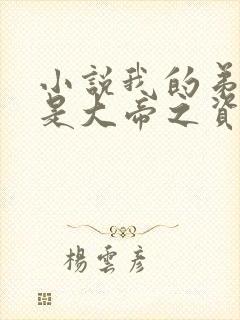 小說我的弟
是大帝之資
楊雲彥